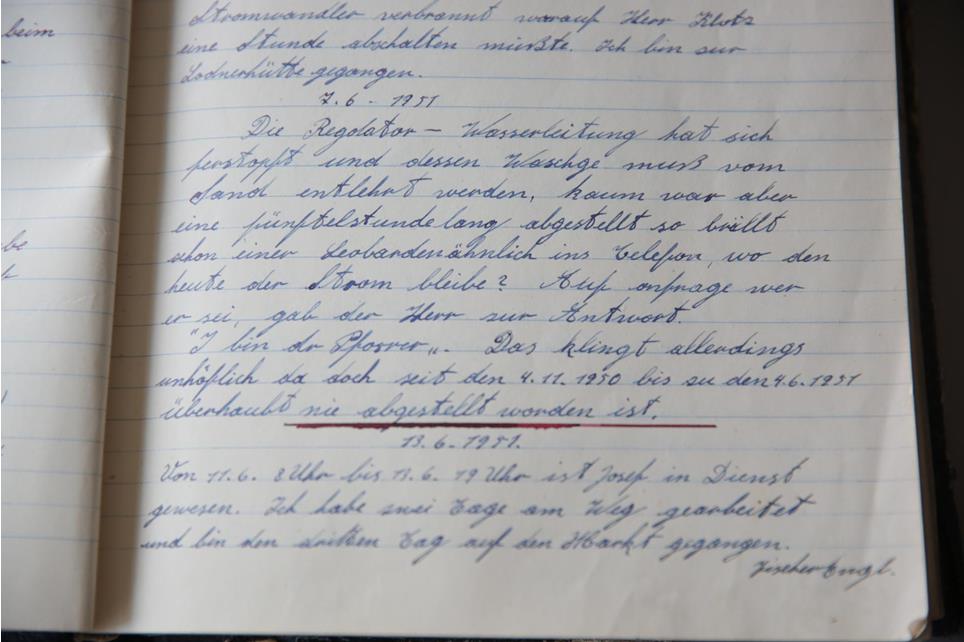 beim
be
Stromwandler verbrannt worauf Herr Klotz
eine Stunde abschalten mußte. Ich bin zur
Lodnerhütte gegangen.
7.6 - 1951
Die Regolator - Wasserleitung hat sich
ferstopft und dessen Waschge muß vom
Sand entlehrt werden, kaum war aber
eine fünftelstunde lang abgestellt so brüllt
schon einer Leobardenähnlich ins Telefon, wo den
heute der Strom bleibe? Auf onfrage wer
er sei, gab der Herr zur Antwort.
"I bin dr Pforrer„. Das klingt allerdings
unhöflich da doch seit den 4.11.1950 bis zu den 4.6.1951
überhaubt nie abgestellt worden ist.
13.6.1951.
Von 11.6. 8 Uhr bis 13.6. 19 Uhr ist Josef in Dienst
gewesen. Ich habe zwei Tage am Weg gearbeitet
und bin den dritten Tag auf den Markt gegangen.
Engl.